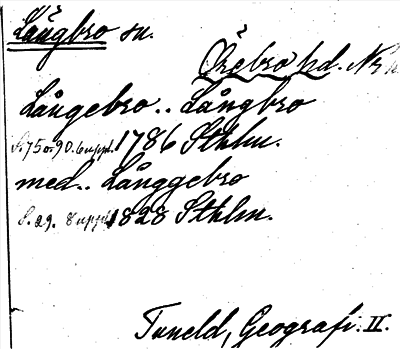 Långbro sn.
Örebro hd. Nke
Långebro .. Långbro
S. 75 o. 90. 6 uppl. 1786 Sthlm.
med .. Långgebro
S. 29. 8 uppl. 1828 Sthlm.
Tuneld, Geografi. II.